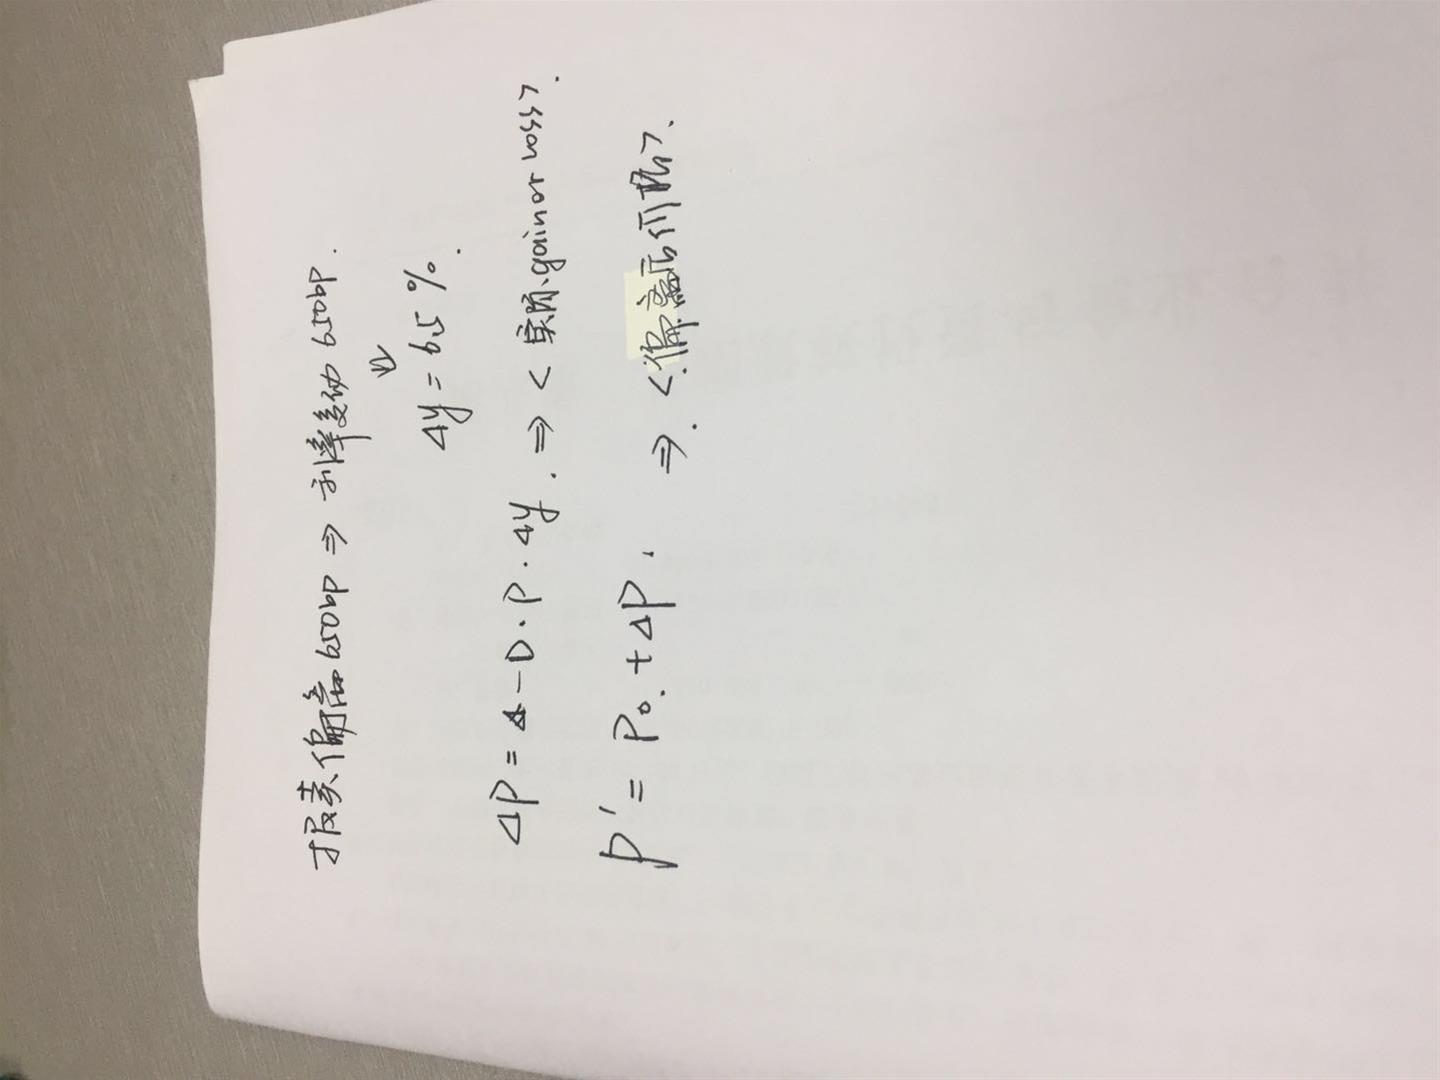 报表偏离650bp ⇒ 利率变动650bp.
⇓
Δy = 6.5 %.
ΔP = -D·P·Δy. ⇒ <实际gain or loss>.
P' = P₀ + ΔP. ⇒ <偏离后价格>.